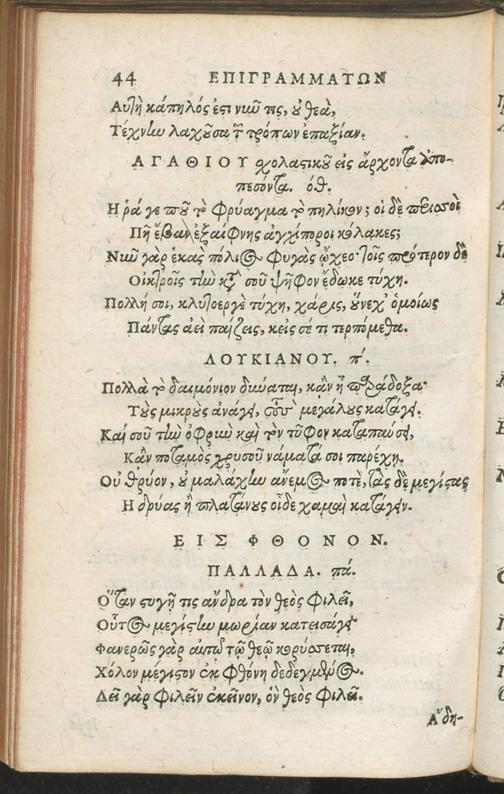 44 ΕΠΙΓΡΑΜΜΑΤΩΝ
Αυτὴ κάπηλός ἐστι νῦν τις, οὐ θεὰ,
Τέχνίω λαχοῦσα τῶν τρόπων ἐπαξίαν.
ΑΓΑΘΙΟΥ σχολαστικοῦ εἰς ἄρχοντα ὑπο-
πεσόντα. οθ.
Η ῥά γε ποῦ τὸ φρύαγμα τὸ πηλίκον; οἱ δὲ περισσοὶ
Πῆ ἔβαν ἐξαίφνης ἀγχίποροι κόλακες;
Νῦν γὰρ ἑκὰς πόλιος φυγὰς ᾤχεο· τοῖς πρότερον δὲ
Οἰκτροῖς τὴν κατὰ σοῦ ψῆφον ἔδωκε τύχη.
Πολλή σοι, κλυτοεργὲ τύχη, χάρις, οὕνεχ' ὁμοίως
Πάντας ἀεὶ παίζεις, κεἰς σέ τι τερπόμεθα.
ΛΟΥΚΙΑΝΟΥ. π'.
Πολλὰ τὸ δαιμόνιον δύναται, κἂν ᾖ παράδοξα·
Τοὺς μικροὺς ἀνάγει, τοὺς μεγάλους κατάγει.
Καί σοῦ τὴν ὀφρὺν καὶ τὸν τῦφον καταπαύσει,
Κἂν ποταμὸς χρυσοῦ νάματά σοι παρέχῃ.
Οὐ θρύον, οὐ μαλάχην ἄνεμος ποτὲ, τὰς δὲ μεγίστας
Η δρύας ἢ πλατάνους οἶδε χαμαὶ κατάγειν.
ΕΙΣ ΦΘΟΝΟΝ.
ΠΑΛΛΑΔΑ. πά.
Ο῞ταν στυγῇ τις ἄνδρα τὸν θεὸς φιλεῖ,
Οὗτος μεγίστην μωρίαν κατεισάγει
Φανερῶς γὰρ αὐτῷ τῷ θεῷ κορύσσεται,
Χόλον μέγιστον ἐκ φθόνου δεδεγμένος.
Δεῖ γὰρ φιλεῖν ἐκεῖνον, ὃν θεὸς φιλεῖ.
Α῎δη-